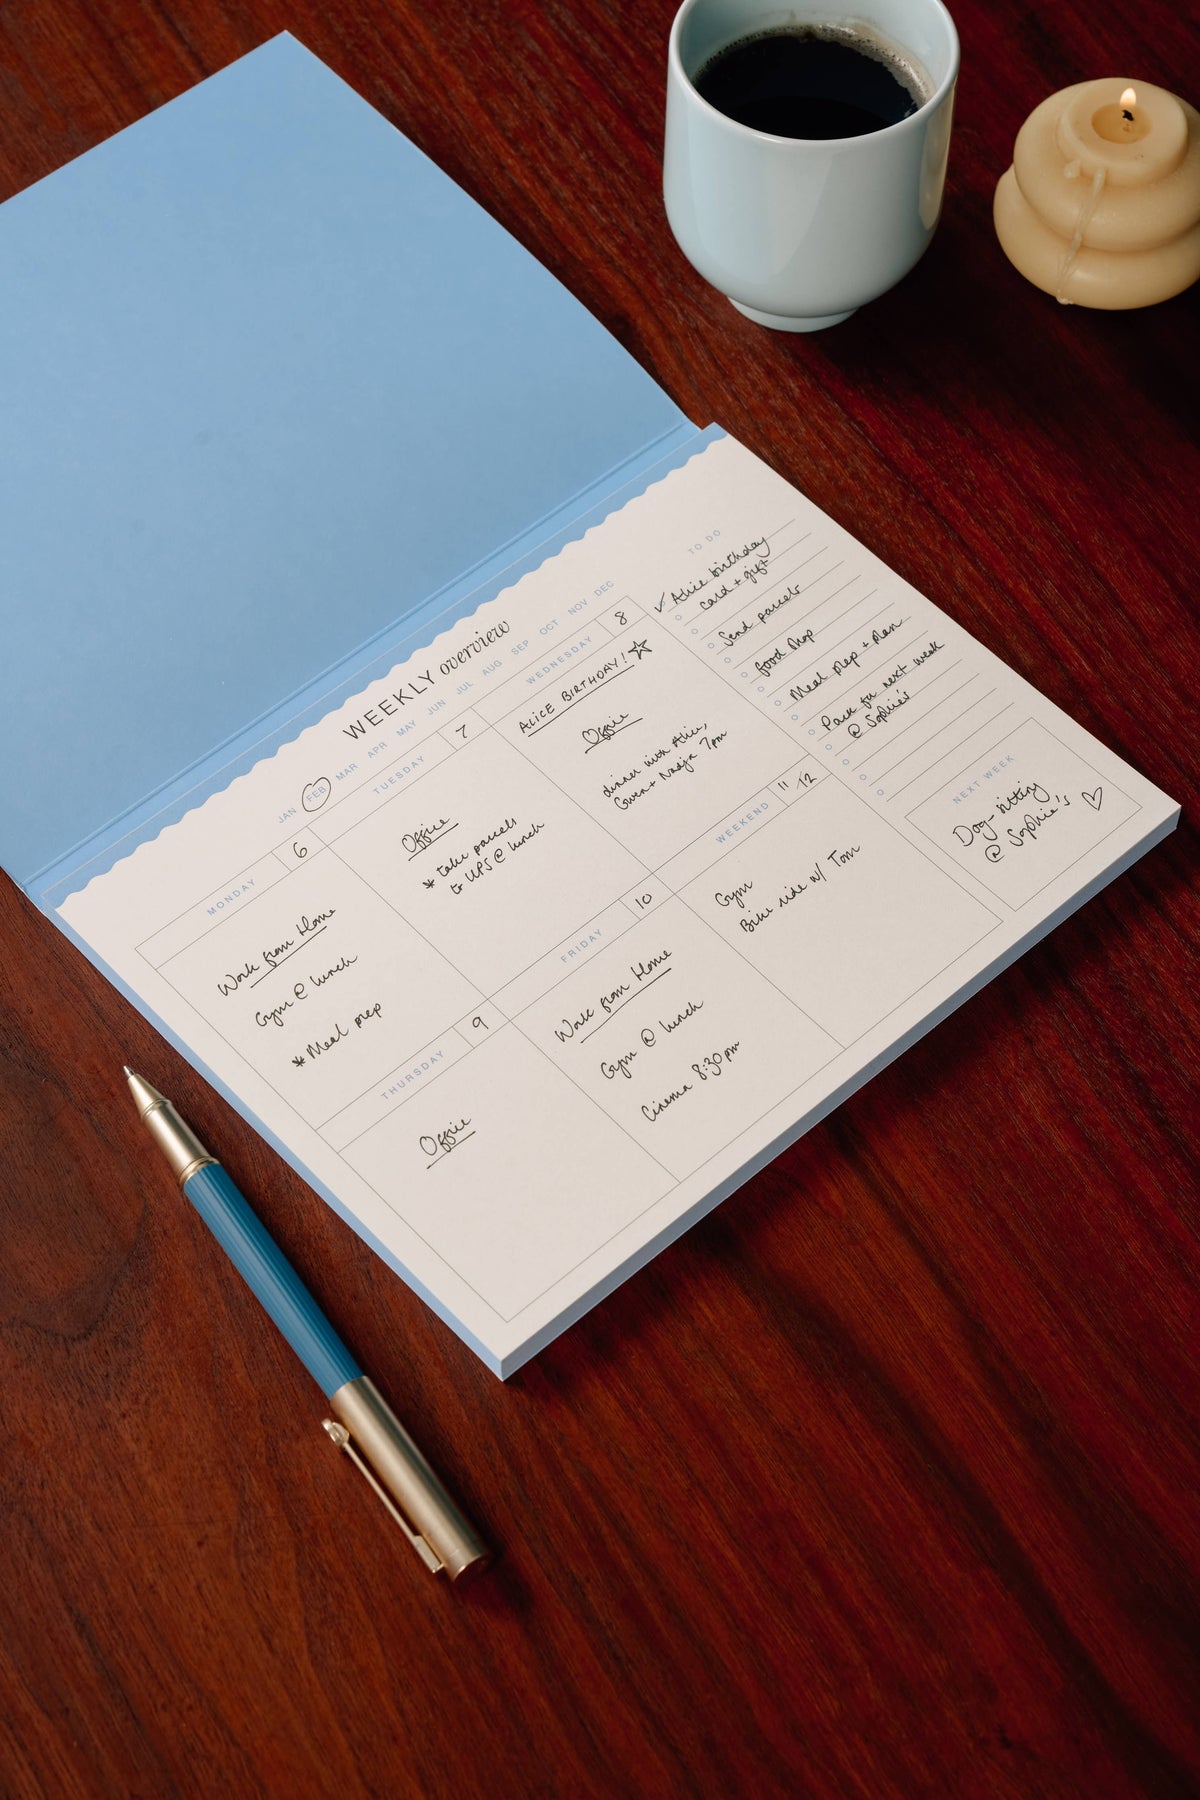 WEEKLY overview
JAN FEB MAR APR MAY JUN JUL AUG SEP OCT NOV DEC
MONDAY 6
Work from Home
Gym @ lunch
* Meal prep
TUESDAY 7
Office
* take parcels
to UPS @ lunch
WEDNESDAY 8
ALICE BIRTHDAY! ☆
Office
dinner with Alice,
Gwen + Nadja 7pm
THURSDAY 9
Office
FRIDAY 10
Work from Home
Gym @ lunch
Cinema 8:30pm
WEEKEND 11 12
Gym
Bike ride w/ Tom
TO DO
✓ Alice birthday
card + gift
Send parcels
food shop
Meal prep + plan
Pack for next week
@ Sophie's
NEXT WEEK
Dog-sitting
@ Sophie's ♡